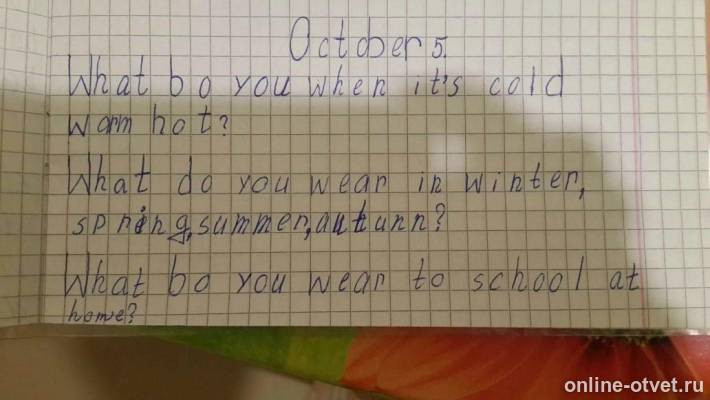 October 5.
What bo you when it's cold
warm hot?
What do you wear in winter,
spring, summer, autunn?
What bo you wear to school at
home?
online-otvet.ru